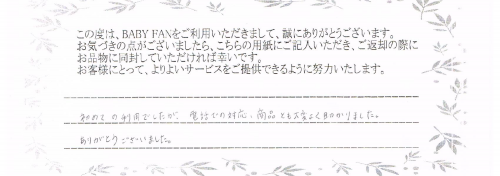 この度は、BABY FANをご利用いただきまして、誠にありがとうございます。
お気づきの点がございましたら、こちらの用紙にご記入いただき、ご返却の際に
お品物に同封していただければ幸いです。
お客様にとって、よりよいサービスをご提供できるように努力いたします。
初めての利用でしたが、電話での対応、商品とも大変よく助かりました。
ありがとうございました。